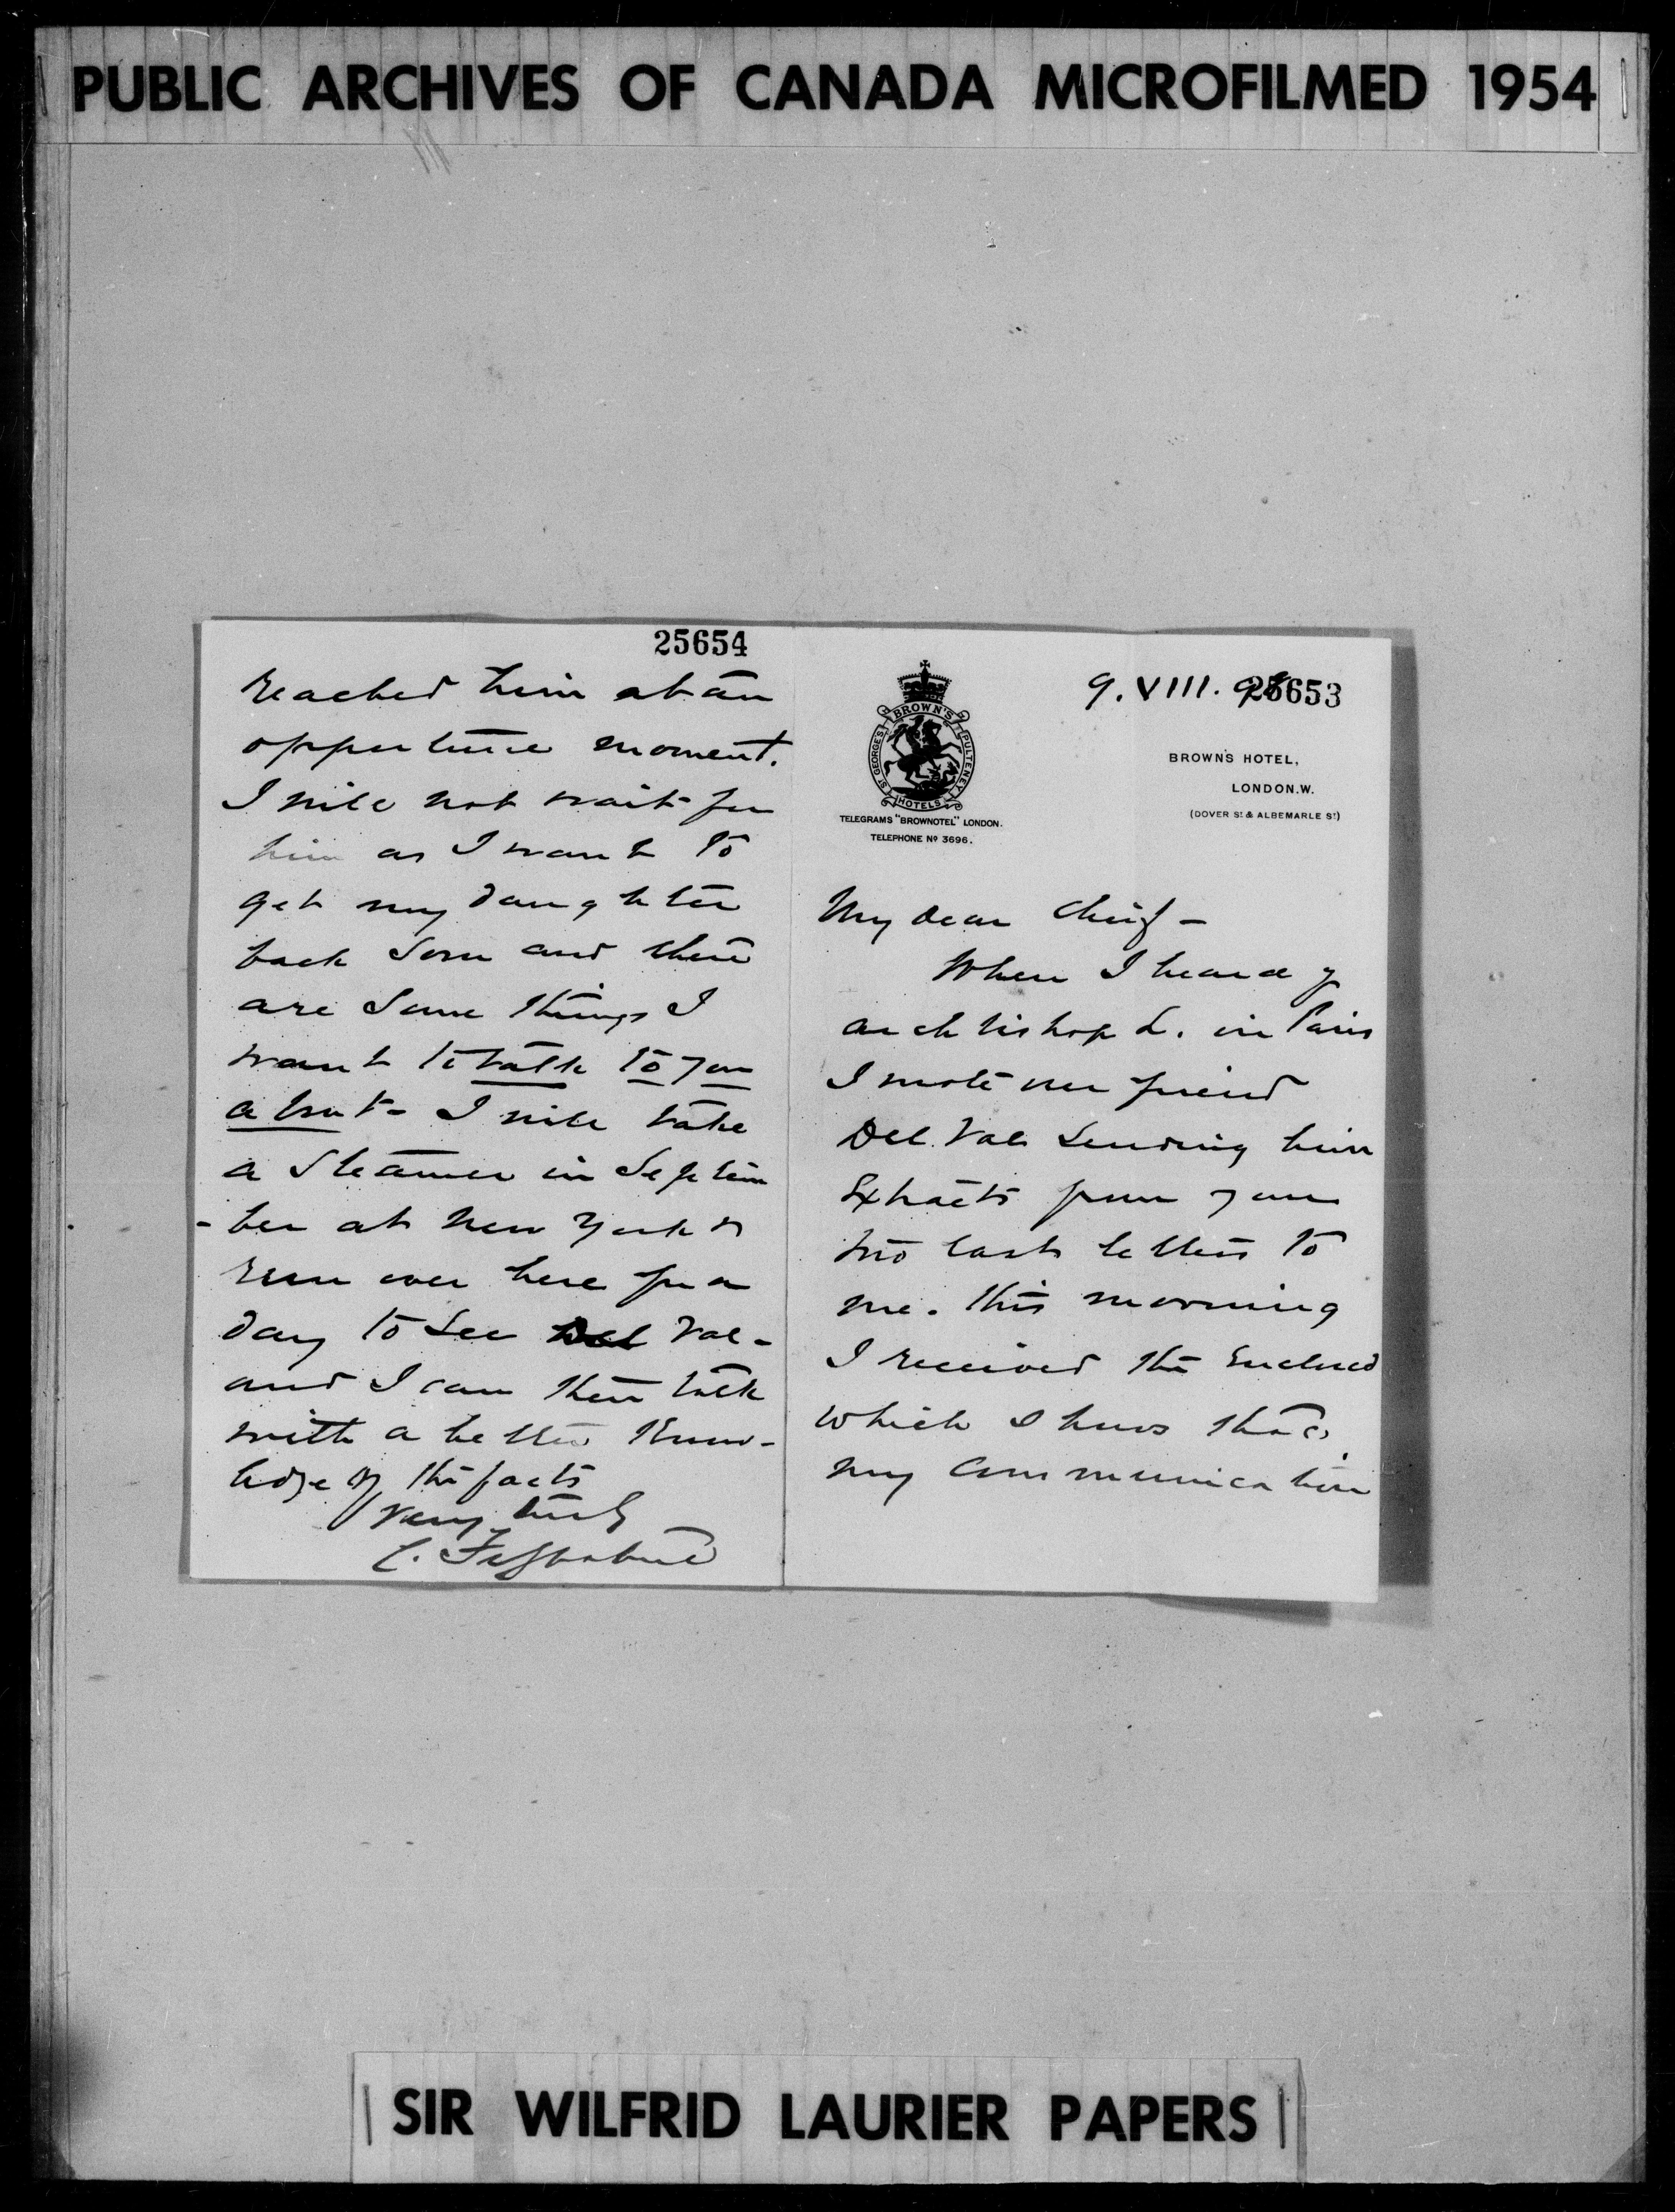 PUBLIC ARCHIVES OF CANADA MICROFILMED 1954
25653
9. VIII. 98
BROWN'S
ST GEORGE'S
PULTENEY
HOTELS
TELEGRAMS "BROWNOTEL" LONDON.
TELEPHONE No 3696.
BROWN'S HOTEL,
LONDON.W.
(DOVER ST & ALBEMARLE ST)
My dear Chief -
When I heard of
archbishop L. in Paris
I wrote our friend
Del Val sending him
Extracts from your
two last letters to
me. This morning
I received the enclosed
which shows that
my communication
25654
reached him at an
opportune moment.
I will not wait for
him as I want to
get my daughter
back soon and there
are some things I
want to talk to you
about - I will take
a steamer in Septem
- ber at New York &
run over here for a
day to see Del Val -
and I can then talk
with a better know-
ledge of the facts
Very truly
C. Fitzpatrick
SIR WILFRID LAURIER PAPERS